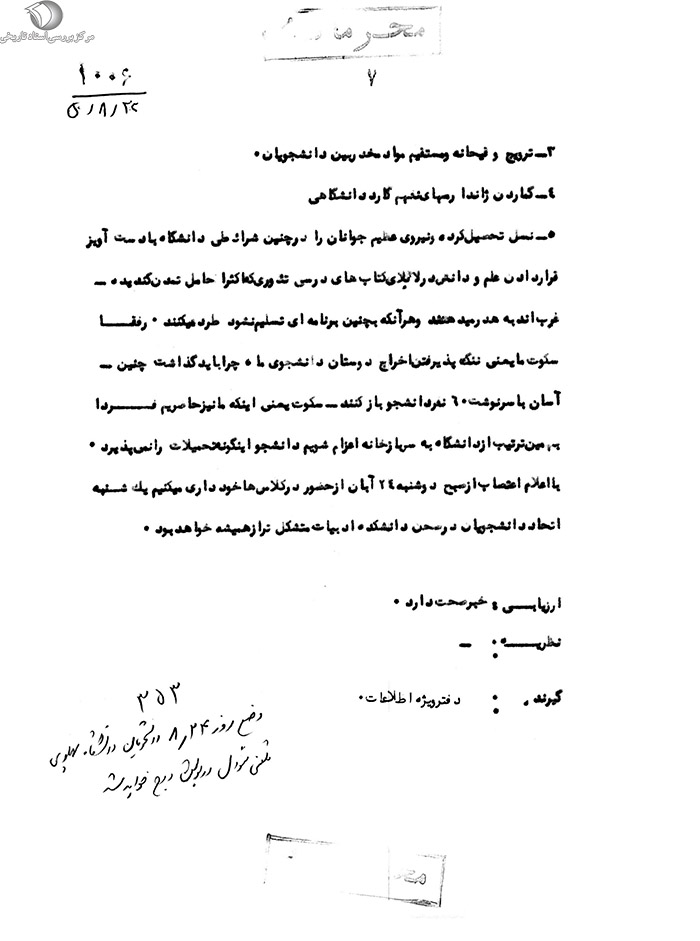 مرکز بررسی اسناد تاریخی
محرمانه
۷
۱۰۰۶
۵۰/۸/۲۲
۳ــ ترویج وقیحانه ومستقیم مواد مخدر بین دانشجویان ۰
٤ــ گماردن ژاندارمهای بنام گارد دانشگاهی
۵ــ نسل تحصیل‌کرده ونیروی عظیم جوانان را درچنین شرائطی دانشگاه بادست آویز
قراردادن علم و دانش درلابلای کتاب های درسی تئوری که اکثرا حامل تمدن گندیده ــ
غرب اند به هدر میدهند وهرآنکه بچنین برنامه ای تسلیم نشود طرد میکنند ۰ رفقــا
سکوت ما یعنی ننگ پذیرفتن اخراج دوستان دانشجوی ما ۰ چرا باید گذاشت چنین ــ
آسان با سرنوشت ٦۰ نفر دانشجو باز کنند ــ سکوت یعنی اینکه ما نیز حاضریم فــردا
بهمین ترتیب ازدانشگاه به سربازخانه اعزام شویم دانشجو اینگونه تحمیلات رانمی‌پذیرد ۰
بااعلام اعتصاب ازصبح دوشنبه ۲٤ آبان ازحضور درکلاس ها خود داری میکنیم یك شنبه
اتحاد دانشجویان درصحن دانشکده ادبیات متشکل ترازهمیشه خواهد بود ۰
ارزیابــی : خبرصحت دارد ۰
نظریــه : ــ
گیرنده : دفتر ویژه اطلاعات ۰
۳۵۳
وضع روز ۸/۲۴ دانشجویان دانشگاه پهلوی
تلفنی سئوال در بولتن درج خواهد شد